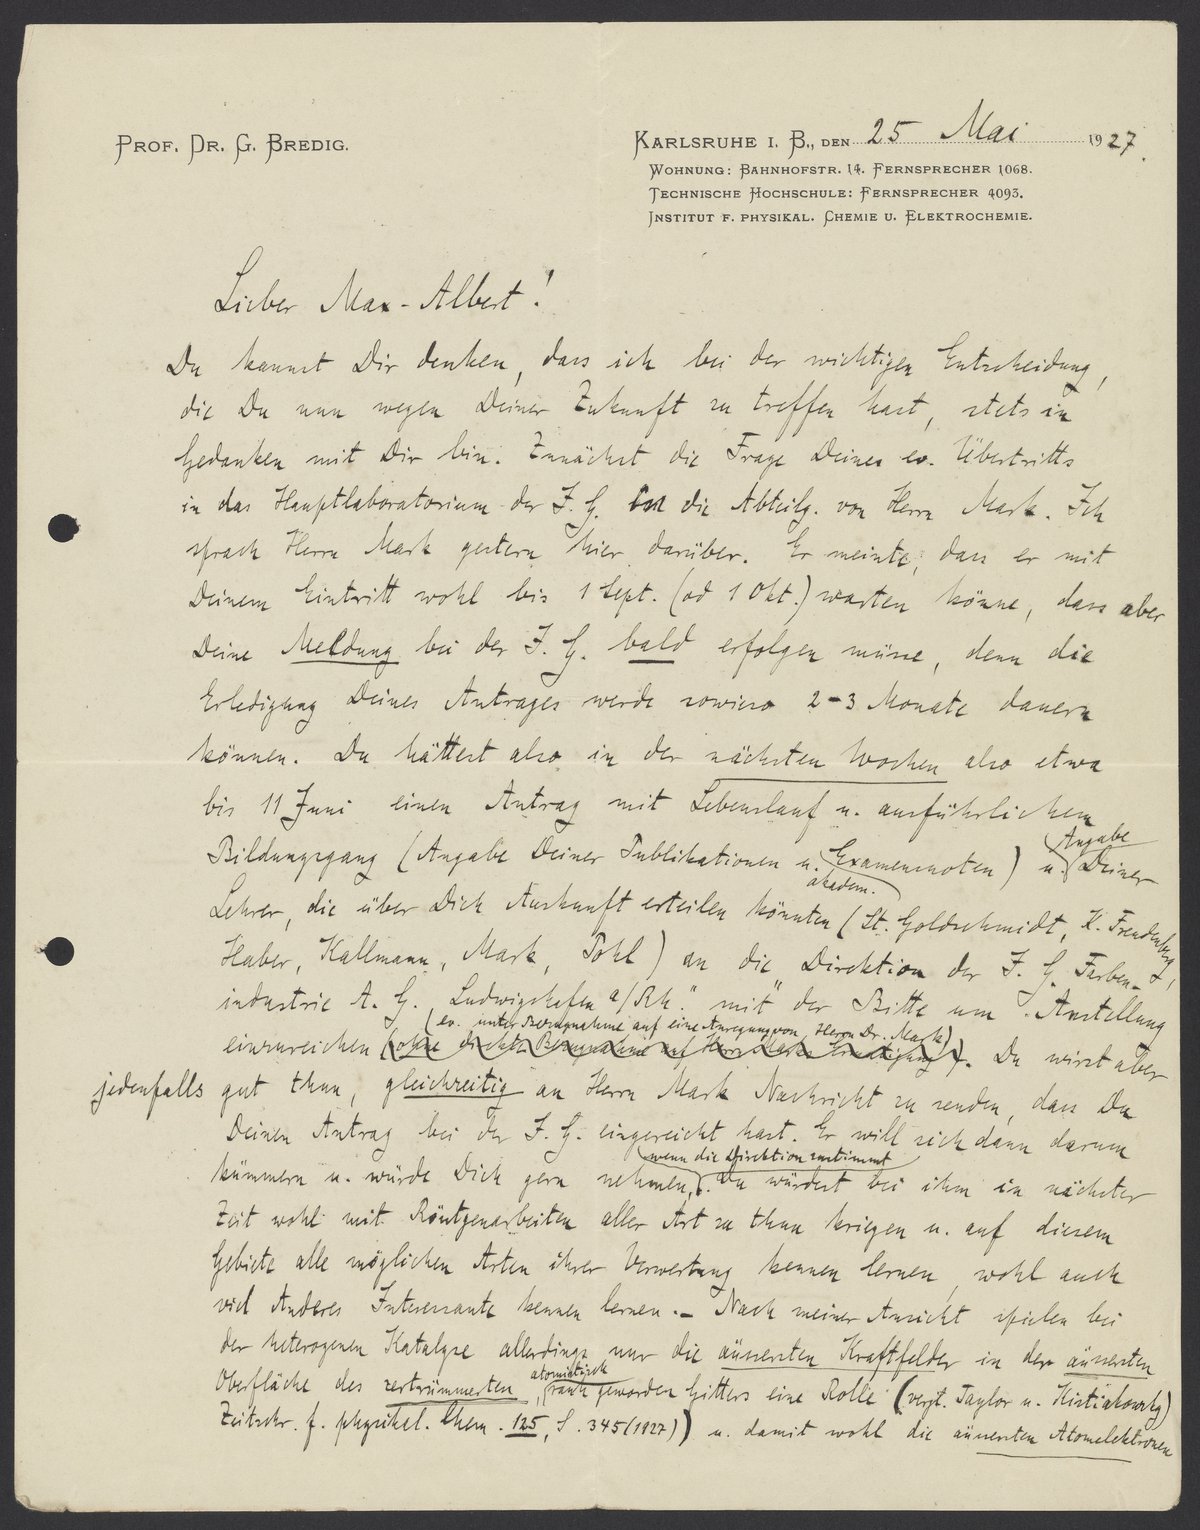 PROF. DR. G. BREDIG.
KARLSRUHE I. B., DEN 25 Mai 1927.
WOHNUNG: BAHNHOFSTR. 14. FERNSPRECHER 1068.
TECHNISCHE HOCHSCHULE: FERNSPRECHER 4093.
INSTITUT F. PHYSIKAL. CHEMIE U. ELEKTROCHEMIE.
Lieber Max-Albert!
Du kannst Dir denken, dass ich bei der wichtigen Entscheidung,
die Du nun wegen Deiner Zukunft zu treffen hast, stets in
Gedanken mit Dir bin. Zunächst die Frage Deines ev. Übertritts
in das Hauptlaboratorium der I. G. in die Abteilg. von Herrn Mark. Ich
sprach Herrn Mark gestern hier darüber. Er meinte, dass er mit
Deinem Eintritt wohl bis 1 Sept. (od 1 Okt.) warten könne, dass aber
Deine Meldung bei der I. G. bald erfolgen müsse, denn die
Erledigung Deines Antrages werde sowieso 2-3 Monate dauern
können. Du hättest also in den nächsten Wochen also etwa
bis 11 Juni einen Antrag mit Lebenslauf u. ausführlichem
Bildungsgang (Angabe Deiner Publikationen u. Examensnoten) u. Angabe Deiner
akadem.
Lehrer, die über Dich Auskunft erteilen könnten (St. Goldschmidt, K. Freudenberg,
Haber, Kallmann, Mark, Pohl) an die "Direktion der I. G. Farben-
industrie A. G. Ludwigshafen a/Rh." mit der Bitte um Anstellung
(ev. unter Bezugnahme auf eine Anregung von Herrn Dr. Mark)
einzureichen (ohne direkte Bezugnahme auf Herrn Marks). Du wirst aber
jedenfalls gut thun, gleichzeitig an Herrn Mark Nachricht zu senden, dass Du
Deinen Antrag bei der I. G. eingereicht hast. Er will sich dann darum
wenn die Direktion zustimmt
kümmern u. würde Dich gern nehmen,. Du würdest bei ihm in nächster
Zeit wohl mit Röntgenarbeiten aller Art zu thun kriegen u. auf diesem
Gebiete alle möglichen Arten ihrer Verwertung kennen lernen, wohl auch
viel Anderes Interessante kennen lernen. – Nach meiner Ansicht spielen bei
der heterogenen Katalyse allerdings nur die äussersten Kraftfelder in der äussersten
atomistisch
Oberfläche des zertrümmerten, rauh geworden Gitters eine Rolle (vergl. Taylor u. Kistiakowsky)
Zeitschr. f. physikal. Chem. 125, S. 345 (1927)) u. damit wohl die äussersten Atomelektronen